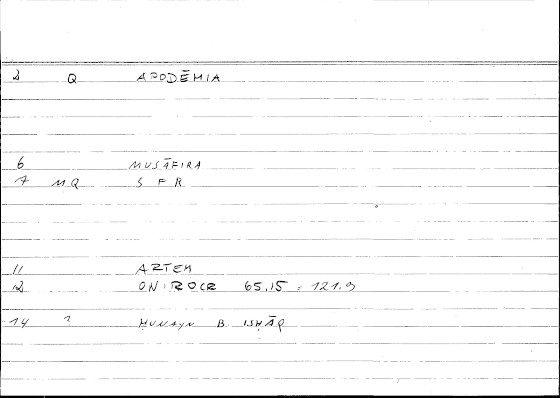 2 Q APODĒMIA
6 MUSĀFIRA
7 MQ S F R
11 ARTEM
12 ONIROCR 65,15 = 121.9
14 ? HUNAYN B. ISHĀQ